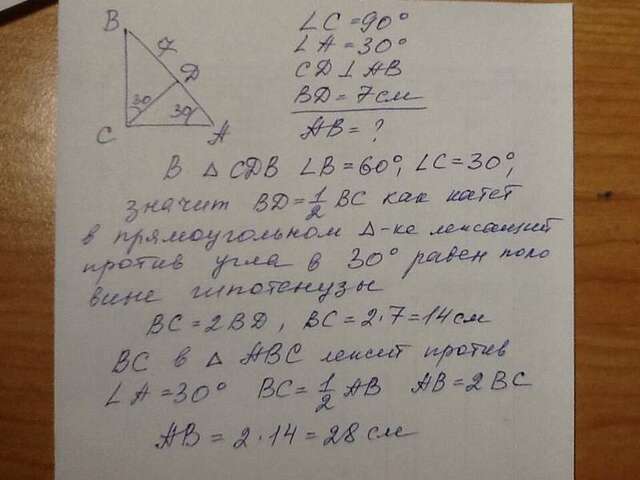 B
7
D
30
30
C
A
∠C=90°
∠A=30°
CD⊥AB
BD=7см
AB=?
В △ CDB ∠B=60°, ∠C=30°,
значит BD=1/2 BC как катет
в прямоугольном △-ке лежащий
против угла в 30° равен поло
вине гипотенузы
BC=2BD, BC=2·7=14см
BC в △ ABC лежит против
∠A=30° BC=1/2 AB AB=2BC
AB=2·14=28см